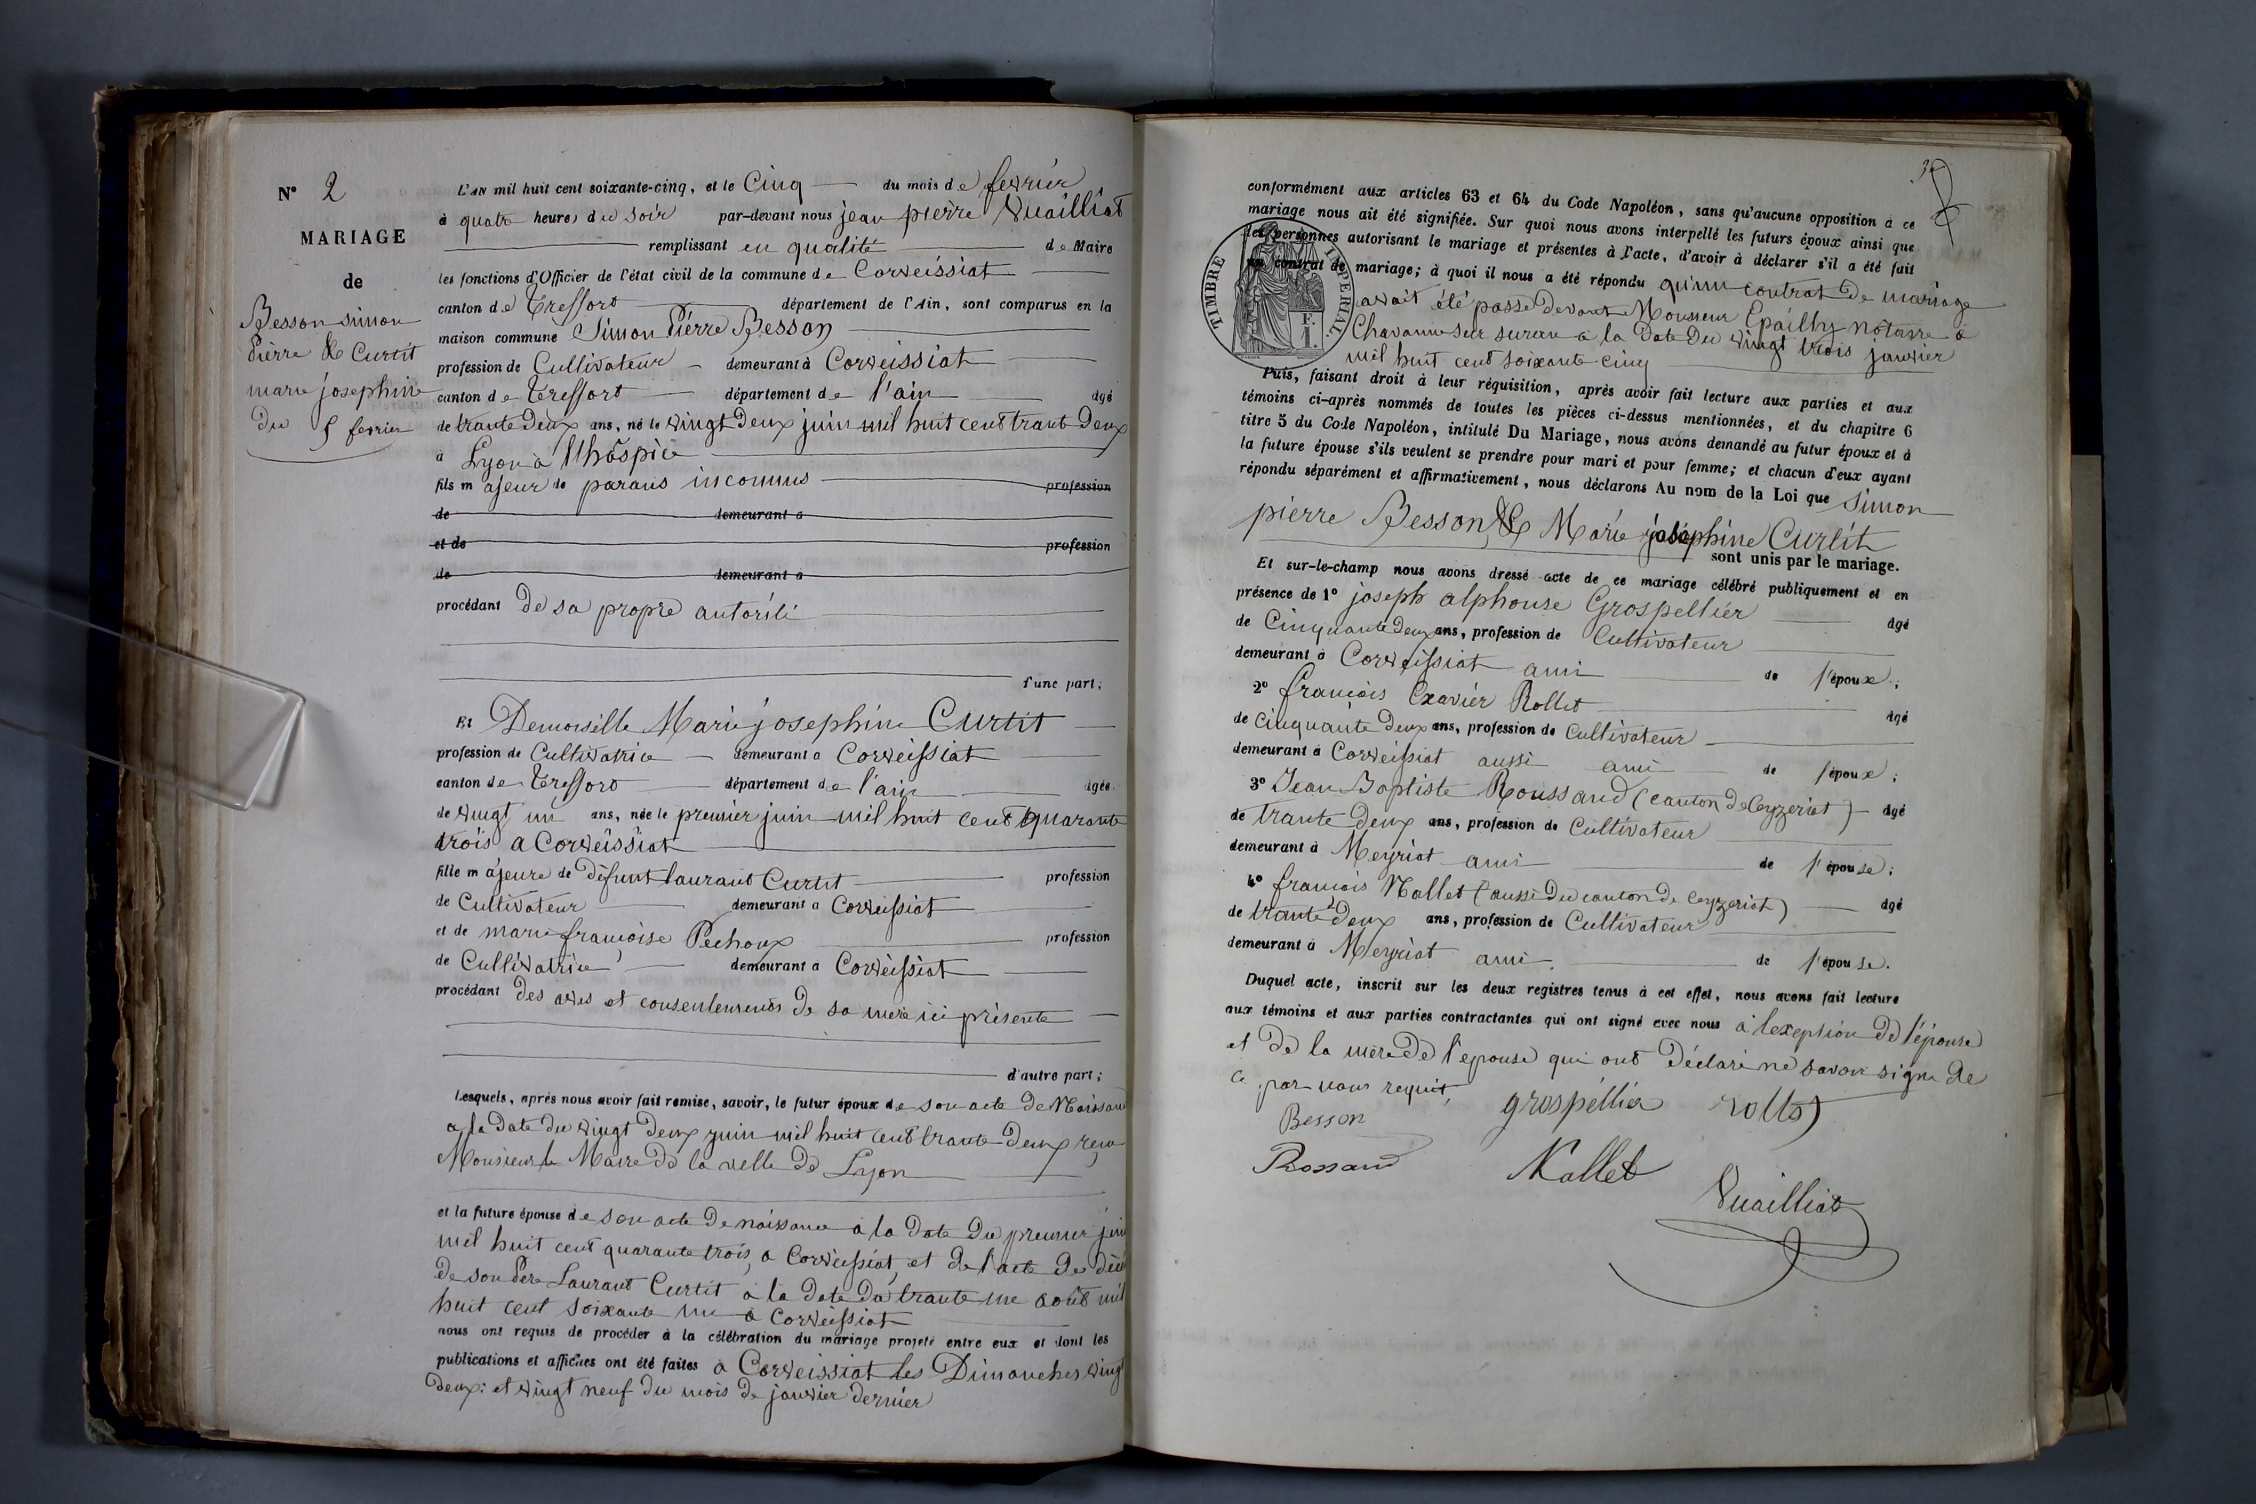 N° 2
MARIAGE
de
Besson simon
Pierre & Curtit
marie josephine
du 5 fevrier
L'AN mil huit cent soixante-cinq, et le Cinq du mois de fevrier
à quatre heures du soir par-devant nous jean pierre Vuailliat
remplissant en qualité de Maire
les fonctions d'Officier de l'état civil de la commune de Corveissiat
canton de Treffort département de l'Ain, sont comparus en la
maison commune Simon Pierre Besson
profession de Cultivateur demeurant à Corveissiat
canton de Treffort département de l'ain âgé
de trante deux ans, né le vingt deux juin mil huit cent trante deux
à Lyon à l'hospice
fils majeur de parans inconnus profession
de demeurant a
et de profession
de demeurant a
procédant de sa propre autorité
d'une part;
Et Demoiselle Marie josephine Curtit
profession de Cultivatrice demeurant a Corveissiat
canton de Treffort département de l'ain âgée
de vingt un ans, née le premier juin mil huit cent quarante
trois a Corveissiat
fille majeure de défunt laurant Curtit profession
de Cultivateur demeurant a Corveissiat
et de marie françoise Pechoux profession
de Cultivatrice demeurant a Corveissiat
procédant des avis et consentements de sa mère ici présente
d'autre part;
Lesquels, après nous avoir fait remise, savoir, le futur époux de son acte de Naissance
a la date du vingt deux juin mil huit cent trante deux reçu
Monsieur le Maire de la ville de Lyon
et la future épouse de son acte de naissance a la date du premier juin
mil huit cent quarante trois, a Corveissiat, et de l'acte de décé
de son Père Laurant Curtit à la date du trante une août mil
huit cent soixante un a Corveissiat
nous ont requis de procéder à la célébration du mariage projeté entre eux et dont les
publications et affiches ont été faites à Corveissiat les Dimanches vingt
deux: et vingt neuf du mois de janvier dernier
conformément aux articles 63 et 64 du Code Napoléon, sans qu'aucune opposition à ce
mariage nous ait été signifiée. Sur quoi nous avons interpellé les futurs époux ainsi que
les personnes autorisant le mariage et présentes à l'acte, d'avoir à déclarer s'il a été fait
un contrat de mariage; à quoi il nous a été répondu qu'un contrat de mariage
avait été passé devant Monsieur Epailly notaire à
Chavannes sur suran a la date du vingt trois janvier
mil huit cent soixante cinq
TIMBRE IMPERIAL
1 F.
Puis, faisant droit à leur réquisition, après avoir fait lecture aux parties et aux
témoins ci-après nommés de toutes les pièces ci-dessus mentionnées, et du chapitre 6
titre 5 du Code Napoléon, intitulé Du Mariage, nous avons demandé au futur époux et à
la future épouse s'ils veulent se prendre pour mari et pour femme; et chacun d'eux ayant
répondu séparément et affirmativement, nous déclarons Au nom de la Loi que Simon
pierre Besson & Marie joséphine Curtit
sont unis par le mariage.
Et sur-le-champ nous avons dressé acte de ce mariage célébré publiquement et en
présence de 1° joseph alphonse Grospellier âgé
de Cinquante deux ans, profession de Cultivateur
demeurant à Corveissiat ami de l'époux;
2° françois Exavier Rollet âgé
de cinquante deux ans, profession de Cultivateur
demeurant à Corveissiat aussi ami de l'époux;
3° Jean Baptiste Roussand (canton de Ceyzeriat) âgé
de trante deux ans, profession de Cultivateur
demeurant à Meyriat ami de l'épouse;
4° françois Nallet (aussi du canton de Ceyzeriat) âgé
de trante deux ans, profession de Cultivateur
demeurant à Meyriat ami de l'épouse.
Duquel acte, inscrit sur les deux registres tenus à cet effet, nous avons fait lecture
aux témoins et aux parties contractantes qui ont signé avec nous à l'exeption de l'épouse
et de la mère de l'épouse qui ont déclaré ne savoir signé de
ce par nous requit,
Besson grospellier rollet
Rossand Nallet
Vuailliat